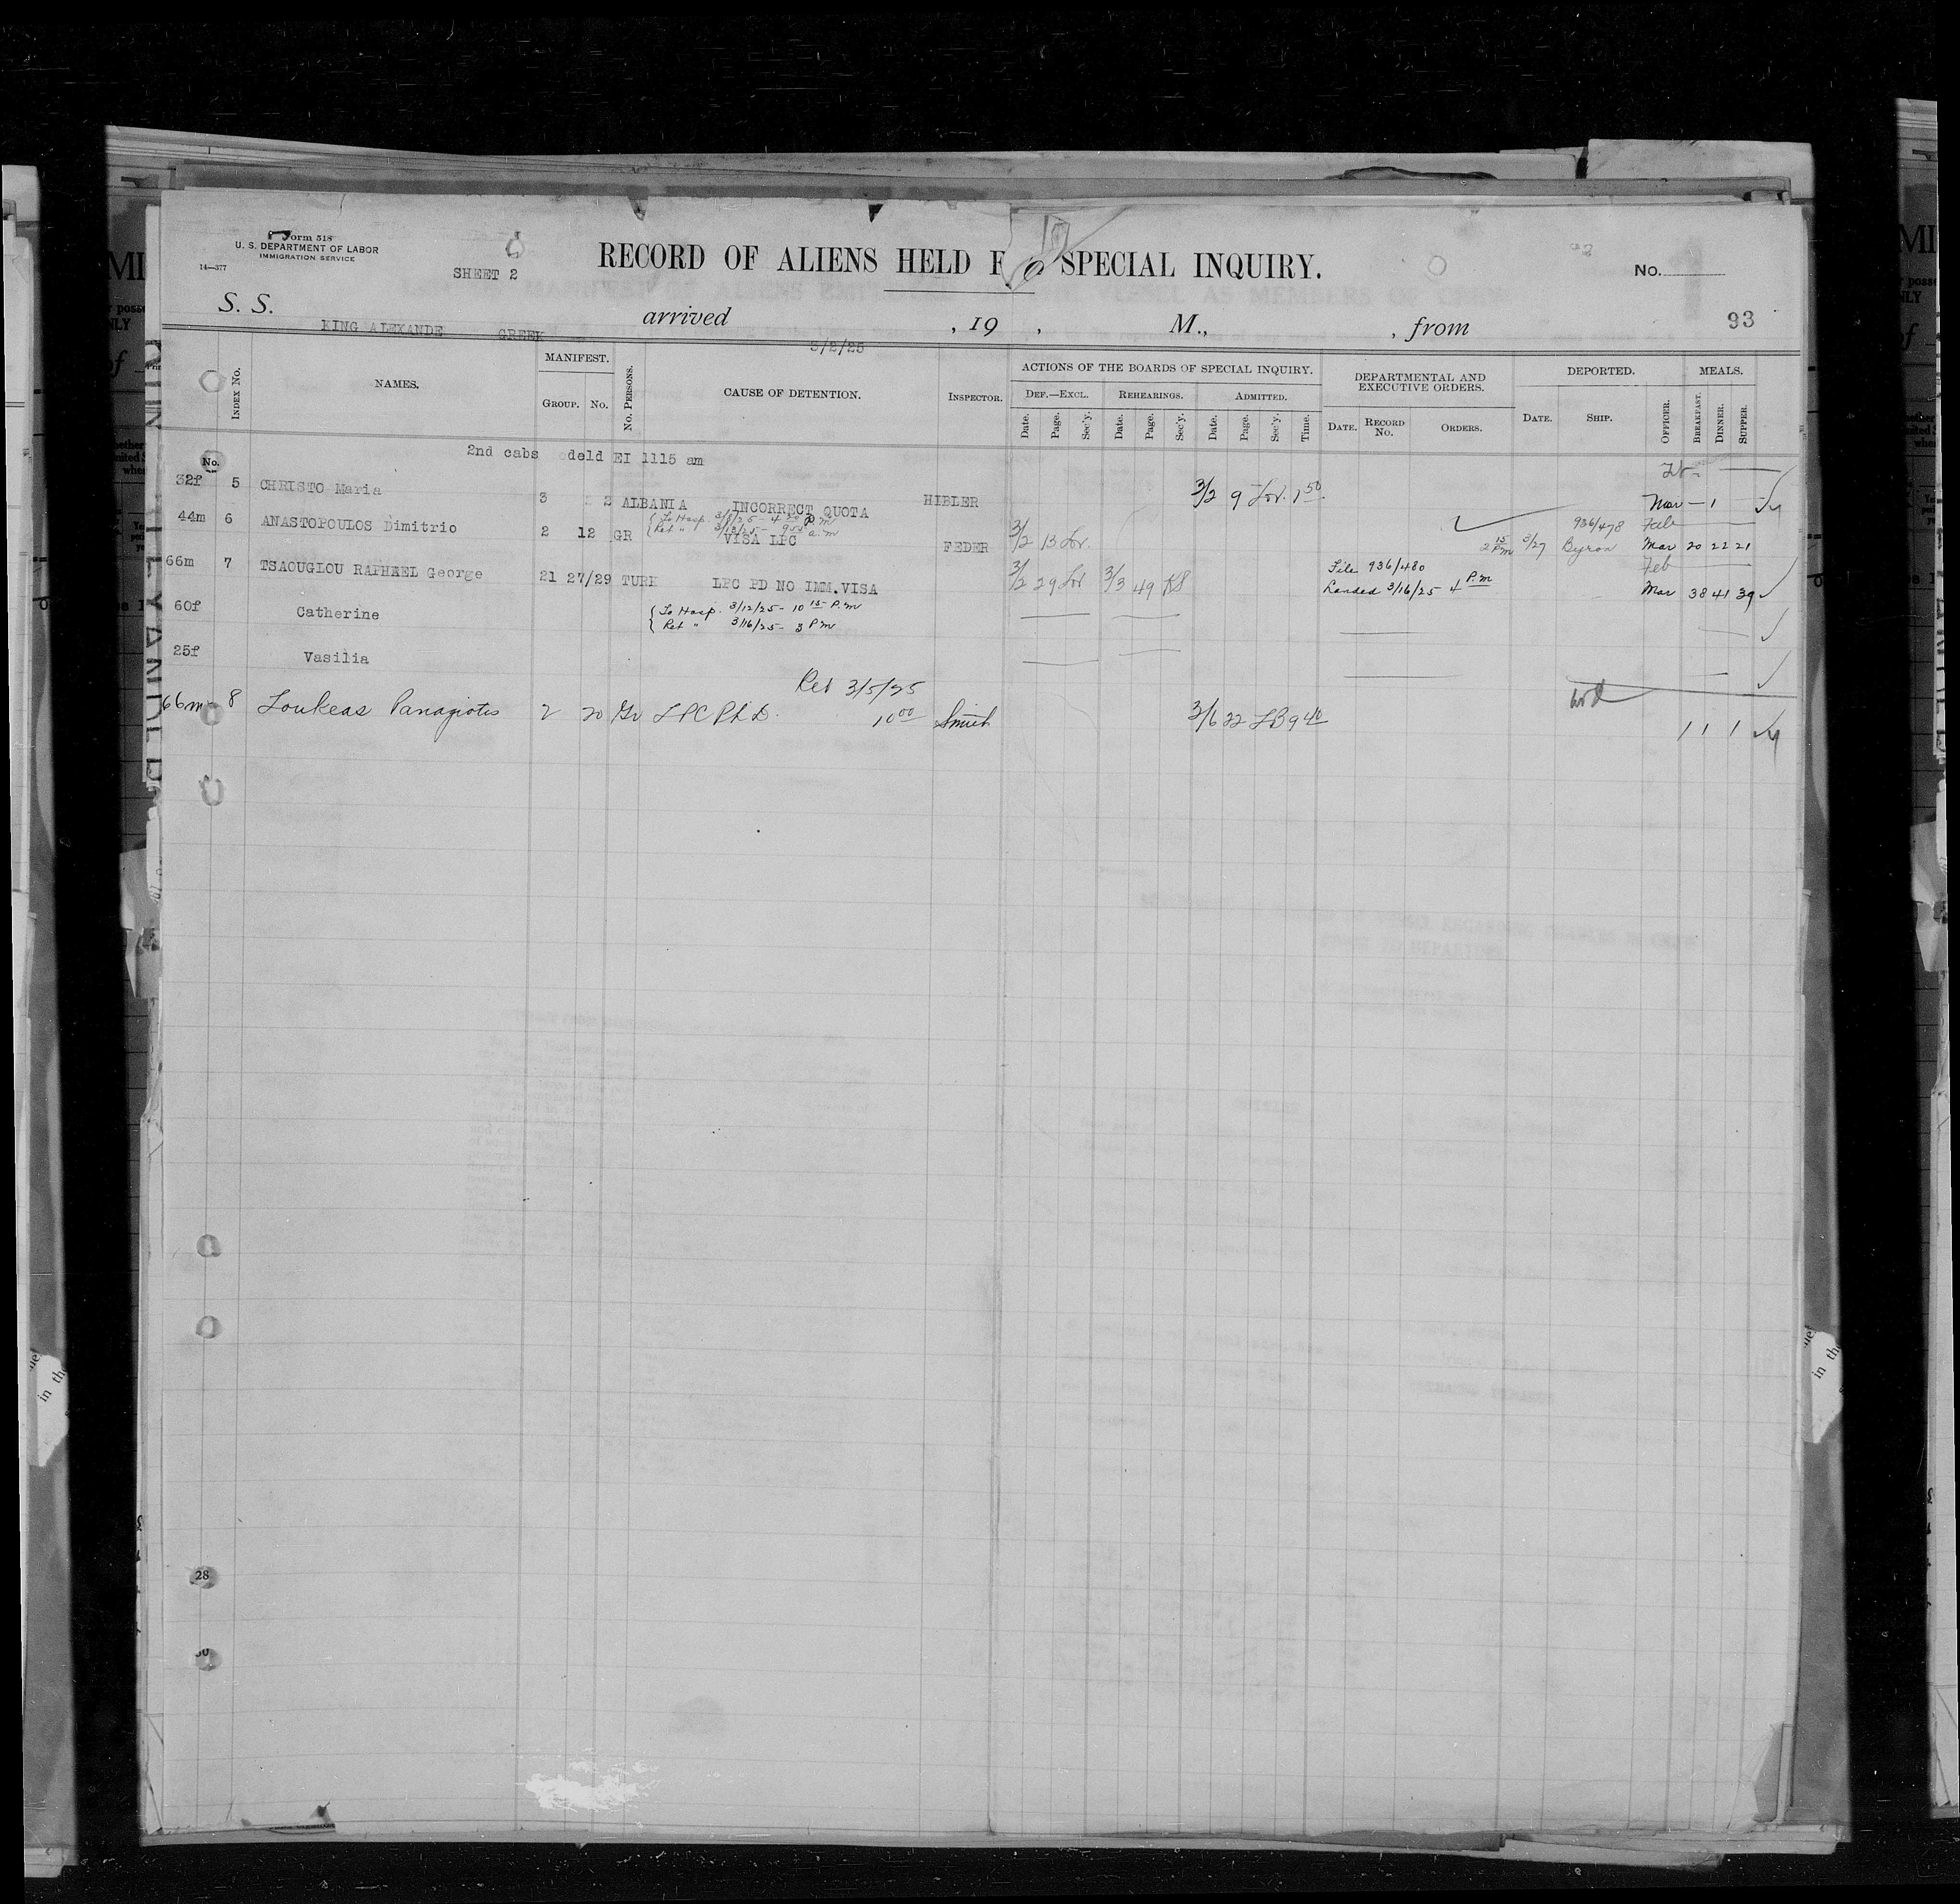 Form 518
U. S. DEPARTMENT OF LABOR
IMMIGRATION SERVICE
14—377
SHEET 2
RECORD OF ALIENS HELD F SPECIAL INQUIRY.
No.
93
S. S. KING ALEXANDE GREEK arrived 3/2/25 , 19 , M., , from
INDEX No. NAMES. MANIFEST. GROUP. No. No. PERSONS. CAUSE OF DETENTION. INSPECTOR.
ACTIONS OF THE BOARDS OF SPECIAL INQUIRY. DEF.—EXCL. REHEARINGS. ADMITTED.
Date. Page. Sec'y. Date. Page. Sec'y. Date. Page. Sec'y. Time.
DEPARTMENTAL AND EXECUTIVE ORDERS. DATE. RECORD No. ORDERS.
DEPORTED. DATE. SHIP. OFFICER.
MEALS. BREAKFAST. DINNER. SUPPER.
No.
2nd cabs deld EI 1115 am
32f 5 CHRISTO Maria 3 2 ALBANIA INCORRECT QUOTA HIBLER 3/2 9 Lor. 1 50 Mar — 1
To Hosp. 3/8/25 - 4 30 P.m
Ret " 3/13/25 - 9 55 a.m
44m 6 ANASTOPOULOS Dimitrio 2 12 GR VISA LPC FEDER 3/2 13 Lor. 2 15 Pm /27 936/478 Byron Feb
Mar 20 22 21
66m 7 TSAOUGLOU RAPHAEL George 21 27/29 TURK LPC PD NO IMM.VISA 3/2 29 Lor 3/3 49 KS File 936/480 Feb
Landed 3/16/25 4 P.m Mar 38 41 39
60f Catherine
To Hosp. 3/12/25 - 10 15 P.m
Ret " 3/16/25 - 3 Pm
25f Vasilia
Ret 3/5/25
66m 8 Loukeas Panagiotis 2 20 Gr LPC Ph D. 10 00 Smith 3/6 22 LB 9 40 1 1 1
28
30